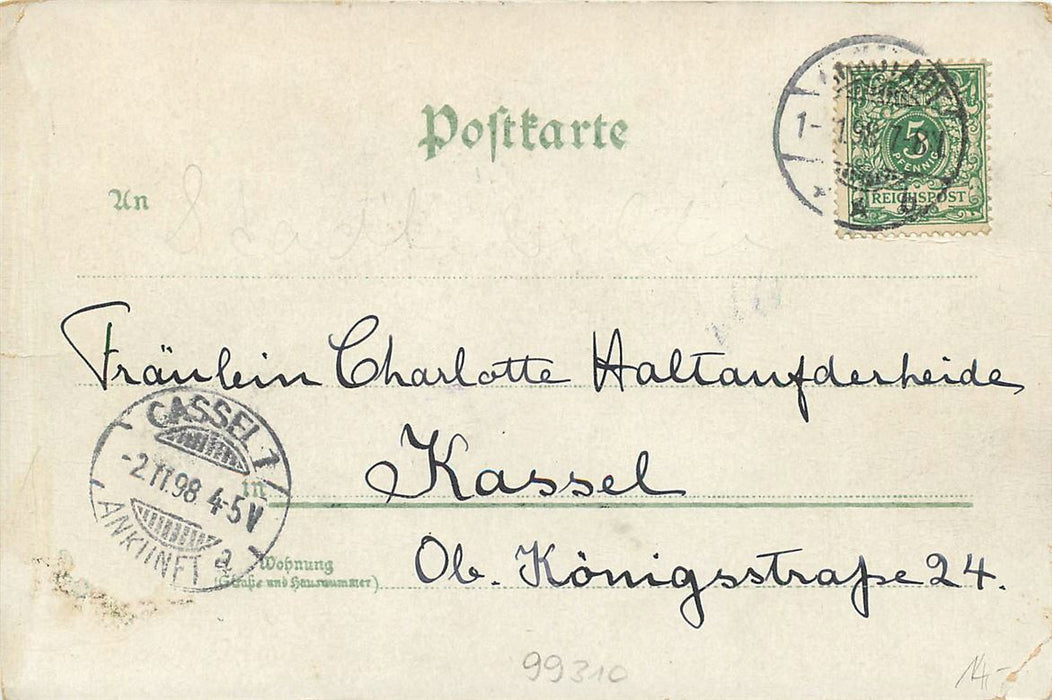 Postkarte
1- 98
5
PFENNIG
REICHSPOST
An
Fräulein Charlotte Haltaufderheide
CASSEL 1
-2.11.98 4-5 V
ANKUNFT
a
in
Kassel
Wohnung
(Straße und Hausnummer)
Ob. Königsstraße 24.
99310
14,-